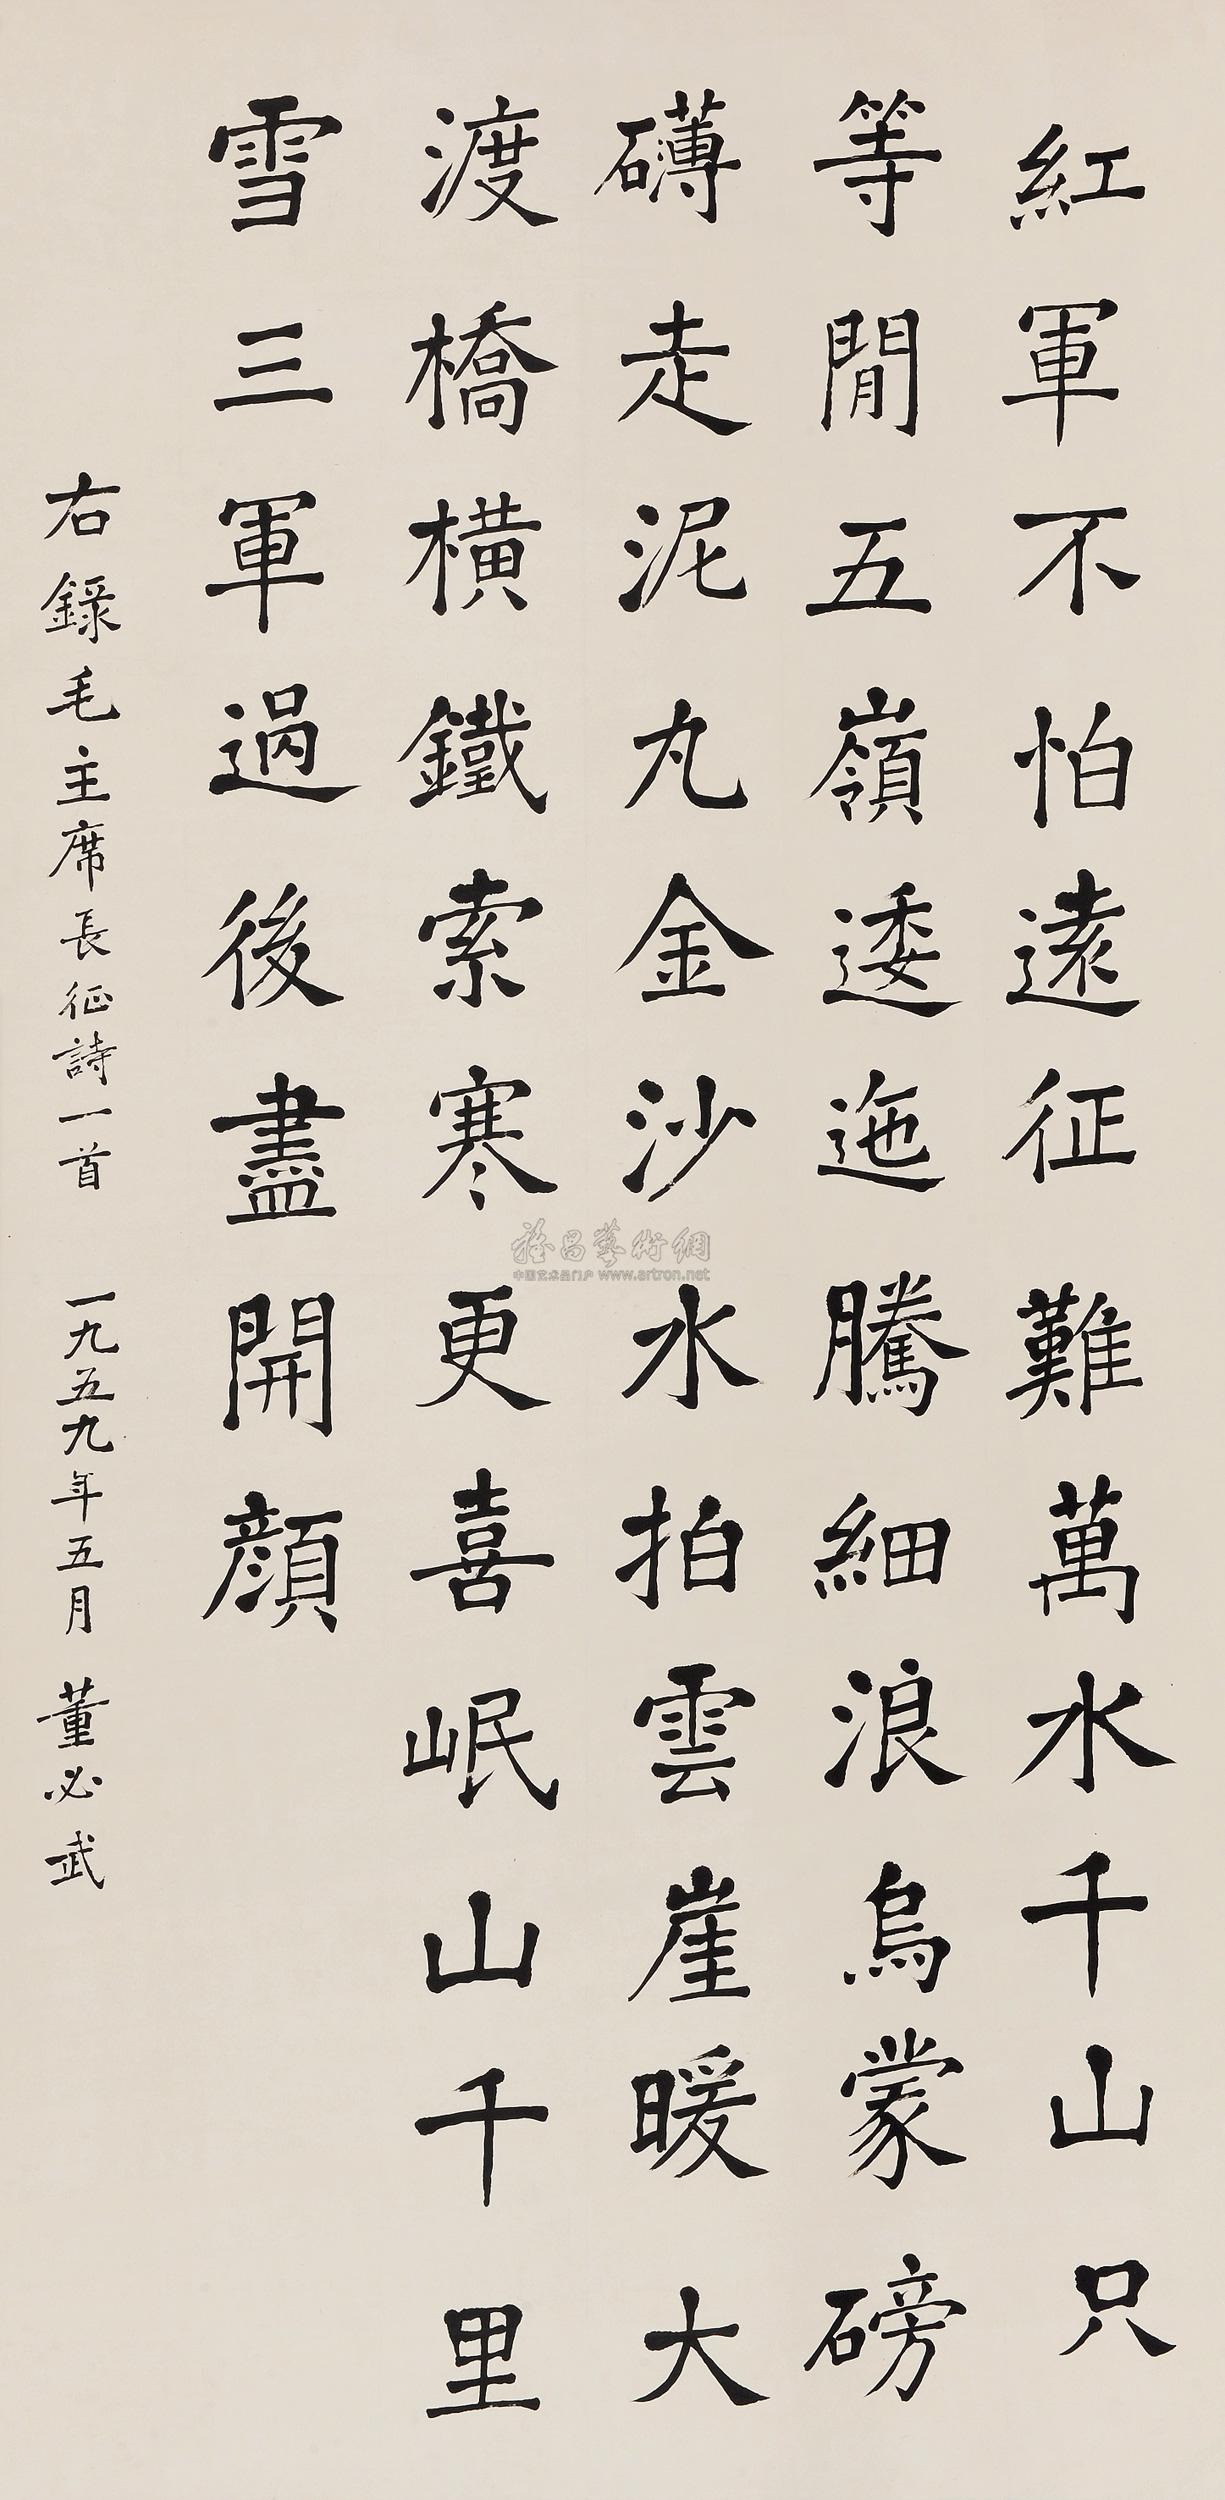 紅軍不怕遠征難萬水千山只
等閒五嶺逶迤騰細浪烏蒙磅
礴走泥丸金沙水拍雲崖暖大
渡橋橫鐵索寒更喜岷山千里
雪三軍過後盡開顔
右錄毛主席長征詩一首 一九五九年五月 董必武
雅昌藝術網
中国艺术品门户 www.artron.net